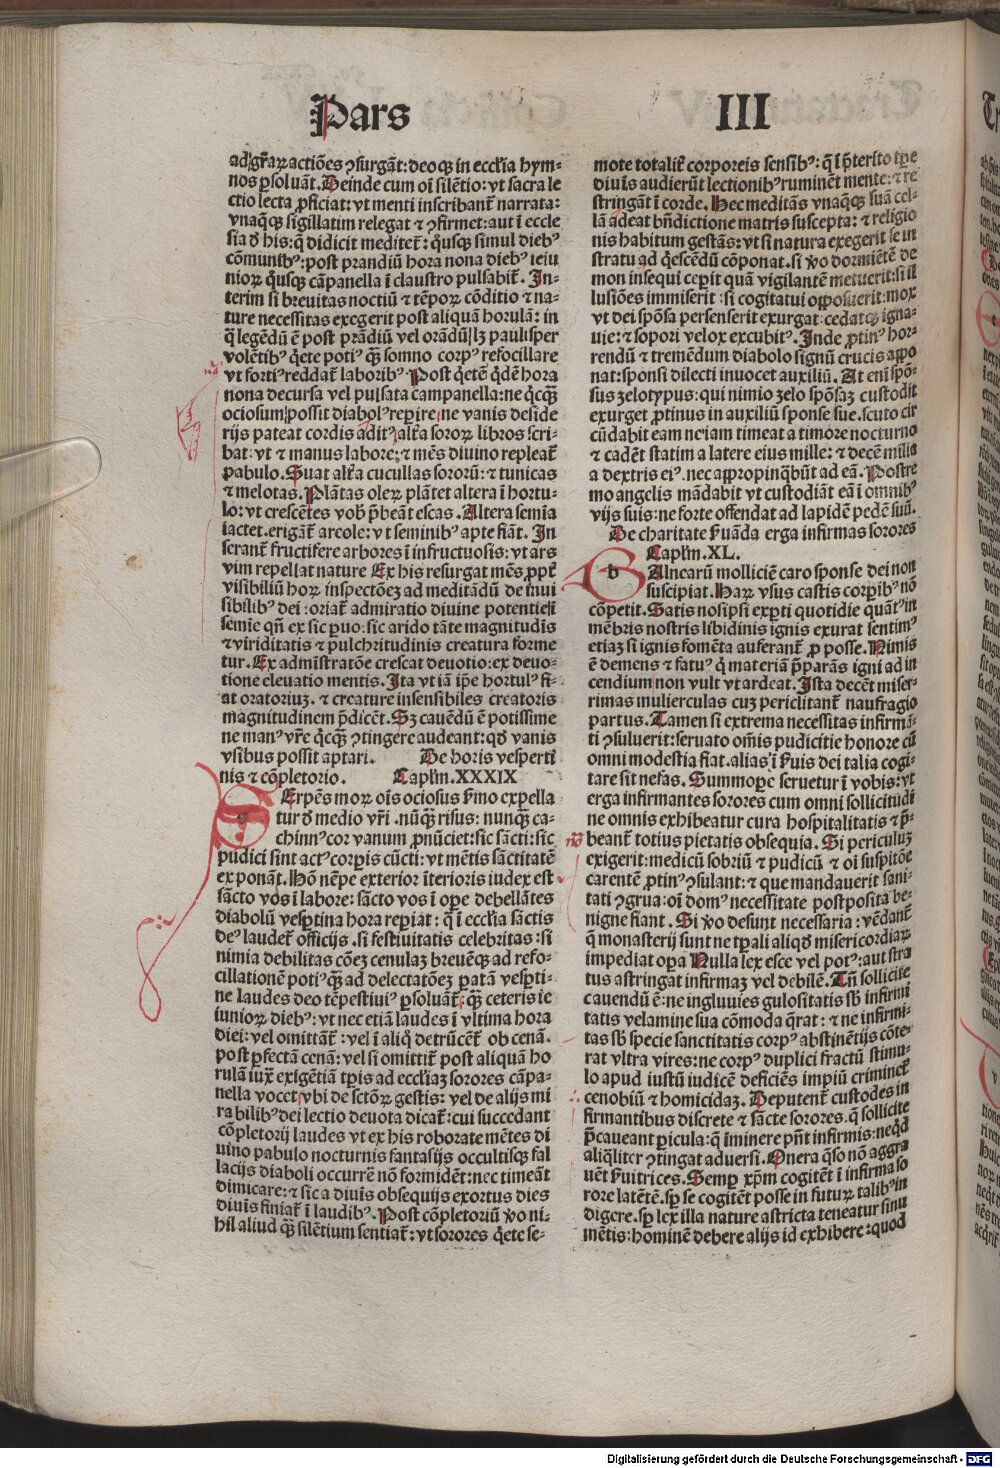 Pars III
ad gr̄aꝝ actiōes ꝯsurgāt: deoqꝫ in eccl'ia hym-
nos ꝑsoluāt. Deinde cum oī silētio: vt sacra le
ctio lecta ꝓficiat: vt menti inscribant᷑ narrata:
vnaqꝫqꝫ sigillatim relegat ⁊ ꝯfirmet: aut ī eccle
sia ꝺ his: q̄ didicit meditet᷑: q̇usqꝫ simul diebꝰ
cōmunibꝰ: post prandiū hora nona diebꝰ ieiu
nioꝝ q̇usqꝫ cāpanella ī claustro pulsabit᷑. In-
terim si breuitas noctiū ⁊ tēpoꝝ cōditio ⁊ na-
ture necessitas exegerit post aliquā horulā: in
q̄ legēdū ē post prādiū vel orādū: lꝫ paulisper
volētibꝰ q̇ete potiꝰ q̄ꝫ somno corpꝰ refocillare
vt fortiꝰ reddat᷑ laboribꝰ. Post q̇etē q̇dē hora
nona decursa vel pulsata campanella: ne q̇cqꝫ
ociosum possit diabolꝰ reperire: ne vanis deside
rijs pateat cordis aditꝰ, alt'a soroꝝ libros scri-
bat: vt ⁊ manus labore: ⁊ mēs diuino repleat᷑
pabulo. Suat alt'a cucullas sororū: ⁊ tunicas
⁊ melotas. Plātas oleꝝ plātet altera ī hortu-
lo: vt crescētes vob̄ p̄beāt escas. Altera semīa
iactet. erigāt᷑ areole: vt seminibꝰ apte fiāt. In
serant᷑ fructifere arbores ī infructuosis: vt ars
vim repellat nature Ex his resurgat mēs ꝓpt᷑
visibiliū hoꝝ inspectōeꝫ ad meditādū de inui
sibilibꝰ dei: oriat᷑ admiratio diuine potentie: si
semīe qn̄ ex sic ꝑuo: sic arido tāte magnitudīs
⁊ viriditatis ⁊ pulchritudinis creatura forme
tur. Ex admīstratōe crescat deuotio: ex deuo-
tione eleuatio mentis. Ita vt iā ip̄e hortulꝰ fi-
at oratoriuꝫ. ⁊ creature insensibiles creatoris
magnitudinem p̄dicēt. Sꝫ cauēdū ē potissime
ne manꝰ vr̄e q̇cqꝫ ꝯtingere audeant: qꝺ vanis
vsibus possit aptari. De horis vesperti
nis ⁊ cōpletorio. Caplm̄. XXXIX
SErpēs moꝝ oīs ociosus f'mo expella
tur ꝺ medio vr̄i. nūq̄ꝫ risus: nunq̄ꝫ ca-
chinnꝰ cor vanum ꝓnūciet: sic sācti: sic
pudici sint actꝰ corpīs cūcti: vt mētis sāctitatē
exponāt. Hō nēpe exterior īterioris iudex est
sācto vos ī labore: sācto vos ī oꝑe debellātes
diabolū vesꝑtina hora reꝑiat: q̄ ī eccl'ia sāctis
deꝰ laudet᷑ officijs. si festiuitatis celebritas: si
nimia debilitas cōeꝫ cenulaꝫ breuēqꝫ ad refo-
cillationē potiꝰ q̄ꝫ ad delectatōeꝫ ꝑatā vesꝑti-
ne laudes deo tēpestiuiꝰ ꝑsoluāt᷑: q̄ꝫ ceteris ie
iunioꝝ diebꝰ: vt nec etiā laudes ī vltima hora
diei: vel omittāt᷑: vel ī aliq̇ detrūcēt᷑ ob cenā.
post ꝑfectā cenā: vel si omittit᷑ post aliquā ho
rulā iux̄ exigētiā tp̄is ad eccl'iaꝫ sorores cāpa-
nella vocet vbi de sctōꝝ gestis: vel de alijs mi
rabilibꝰ dei lectio deuota dicat᷑: cui succedant
cōpletorij laudes vt ex his roborate mētes di
uino pabulo nocturnis fantasijs occultisqꝫ fal
lacijs diaboli occurrē nō formidēt: nec timeāt
dimicare: ⁊ sic a diuīs obsequijs exortus dies
diuīs finiat᷑ ī laudibꝰ. Post cōpletoriū v̄o ni-
hil aliud q̄ꝫ silētium sentiat᷑: vt sorores q̇ete se-
mote totalit᷑ corporeis sensibꝰ: q̄ ī p̄terito tp̄e
diuīs audierūt lectionibꝰ ruminēt mente: ⁊ re
stringāt ī corde. Hec meditās vnaqꝫqꝫ suā cel-
lā adeat bn̄dictione matris suscepta: ⁊ religio
nis habitum gestās: vt si natura exegerit se in
stratu ad q̇escēdū cōponat. si v̄o dormiētē de
mon insequi ceꝑit quā vigilantē metuerit: si il
lusiōes immiserit: si cogitatui opposuerit: mox
vt dei spōsa persenserit exurgat: cedatqꝫ igna-
uie: ⁊ sopori velox excubitꝰ. Inde ꝓtinꝰ hor-
rendū ⁊ tremēdum diabolo signū crucis appo
nat: sponsi dilecti inuocet auxiliū. At enī spō-
sus zelotypus: qui nimio zelo spōsaꝫ custodit
exurget ꝓtinus in auxiliū sponse sue. scuto cir
cūdabit eam ne iam timeat a timore nocturno
⁊ cadēt statim a latere eius mille: ⁊ decē milia
a dextris eiꝰ. nec appropinq̄būt ad eā. Postre
mo angelis mādabit vt custodiāt eā ī omnibꝰ
vijs suis: ne forte offendat ad lapidē pedē suū.
De charitate f'uāda erga infirmas sorores
Caplm̄. XL.
b
BAlnearū molliciē caro sponse dei non
suscipiat. Haꝝ vsus castis corꝑibꝰ nō
cōpetit. Satis nosipsi exꝑti quotidie quātꝰ in
mēbris nostris libidinis ignis exurat sentimꝰ
etiaꝫ si ignis fomēta auferant᷑ ꝓ posse. Nimis
ē demens ⁊ fatuꝰ q̇ materiā p̄parās igni ad in
cendium non vult vt ardeat. Ista decēt miser-
rimas mulierculas cuꝫ periclitant᷑ naufragio
partus. Tamen si extrema necessitas infirmi-
ti ꝯsuluerit: seruato om̄is pudicitie honore cū
omni modestia fiat. alias ī f'uis dei talia cogi-
tare sit nefas. Summopꝫ seruetur ī vobis: vt
erga infirmantes sorores cum omni sollicitudi
ne omnis exhibeatur cura hospitalitatis ⁊ p̄-
beant᷑ totius pietatis obsequia. Si periculuꝫ
exigerit: medicū sobriū ⁊ pudicū ⁊ oī suspitōe
carentē ꝓtinꝰ ꝯsulant: ⁊ que mandauerit sani-
tati ꝯgrua: oī domꝰ necessitate postposita be-
nigne fiant. Si v̄o desunt necessaria: vēdant᷑
q̄ monasterij sunt ne tꝑali aliqꝺ misericordiaꝝ
impediat oꝑa Nulla lex esce vel potꝰ: aut stra
tus astringat infirmaꝫ vel debilē. Tn̄ sollicite
cauendū ē: ne ingluuies gulositatis sb̄ infirmi
tatis velamine sua cōmoda q̄rat: ⁊ ne infirmi-
tas sb̄ specie sanctitatis corpꝰ abstinētijs cōte-
rat vltra vires: ne corpꝰ duplici fractū stimu-
lo apud iustū iudicē deficiēs impiū criminet᷑
cenobiū ⁊ homicidaꝫ. Deputent᷑ custodes in
firmantibus discrete ⁊ sācte sorores. q̄ sollicite
p̄caueant ꝑicula: q̄ īminere pn̄t infirmis: neqꝺ
aliq̇liter ꝯtingat aduersi. Onera q̄so nō aggra
uēt f'uitrices. Semꝑ xp̄m cogitēt ī infirma so
rore latētē. sꝑ se cogitēt posse in futuꝝ talibꝰ in
digere. sꝑ lex illa nature astricta teneatur sinu
mētis: hominē debere alijs id exhibere: quod
Digitalisierung gefördert durch die Deutsche Forschungsgemeinschaft - DFG